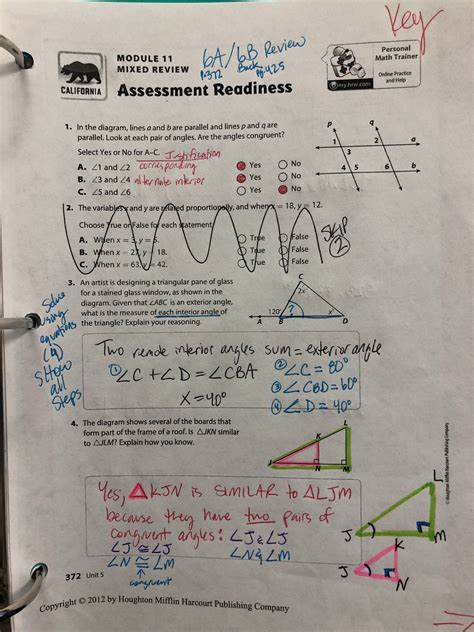 Key
MODULE 11
MIXED REVIEW
6A/6B Review
p.372 Back pg 425
CALIFORNIA
Assessment Readiness
Personal
Math Trainer
Online Practice
and Help
my.hrw.com
1. In the diagram, lines a and b are parallel and lines p and q are
parallel. Look at each pair of angles. Are the angles congruent?
Select Yes or No for A–C. Justification
A. ∠1 and ∠2 corresponding Yes No
B. ∠3 and ∠4 alternate interior Yes No
C. ∠5 and ∠6 Yes No
p q
1 2 a
3
4 5 6 b
2. The variables x and y are related proportionally, and when x = 18, y = 12.
Choose True or False for each statement.
A. When x = 3, y = 6. True False
B. When x = 27, y = 18. True False
C. When x = 63, y = 42. True False
SKIP
2
3. An artist is designing a triangular pane of glass
for a stained glass window, as shown in the
diagram. Given that ∠ABC is an exterior angle,
what is the measure of each interior angle of
the triangle? Explain your reasoning.
C
2x
120° ? x
A B D
Solve
using
equations
(4)
Show
all
steps
Two remote interior angles sum = exterior angle
① ∠C + ∠D = ∠CBA
X = 40°
② ∠C = 80°
③ ∠CBD = 60°
④ ∠D = 40°
4. The diagram shows several of the boards that
form part of the frame of a roof. Is △JKN similar
to △JLM? Explain how you know.
L
K
J N M
Yes, △KJN is SIMILAR to △LJM
because they have two pairs of
congruent angles: ∠J & ∠J
∠N & ∠M
∠J ≅ ∠J
∠N ≅ ∠M
congruent
L
J M
K
J N
© Houghton Mifflin Harcourt Publishing Company
372 Unit 5
Copyright © 2012 by Houghton Mifflin Harcourt Publishing Company